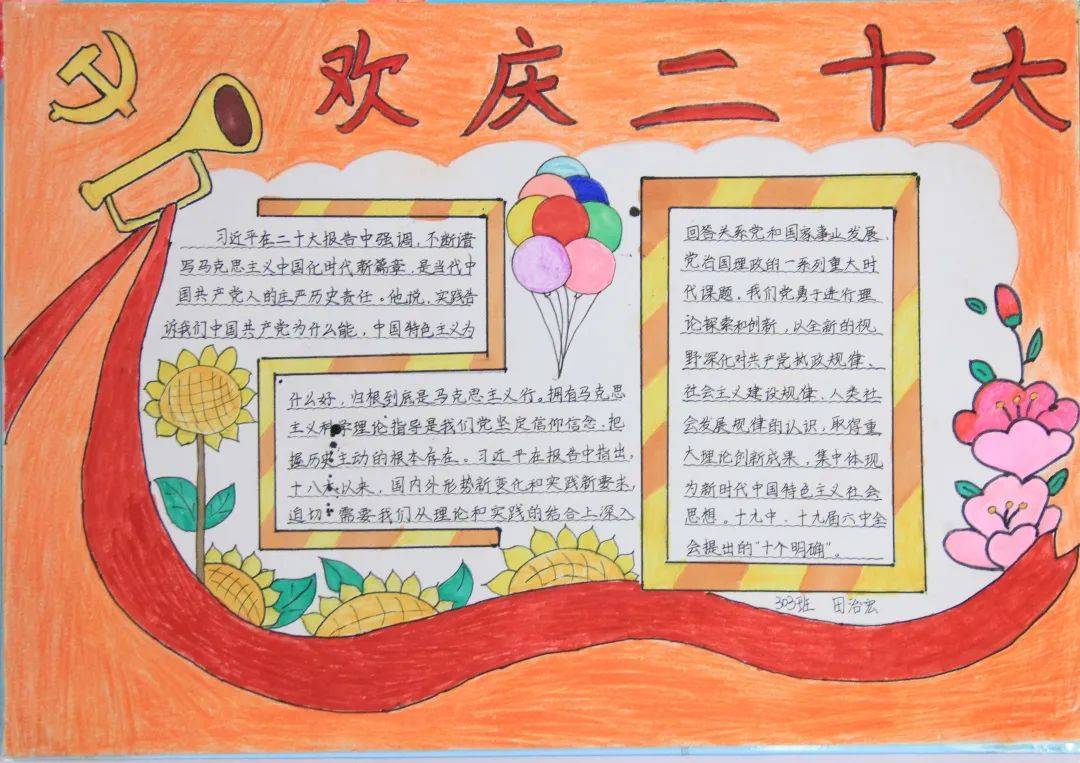 欢庆二十大
习近平在二十大报告中强调,不断谱
写马克思主义中国化时代新篇章,是当代中
国共产党人的庄严历史责任。他说,实践告
诉我们中国共产党为什么能,中国特色主义为
什么好,归根到底是马克思主义行。拥有马克思
主义科学理论指导是我们党坚定信仰信念、把
握历史主动的根本存在。习近平在报告中指出,
十八大以来,国内外形势新变化和实践新要求,
迫切需要我们从理论和实践的结合上深入
回答关系党和国家事业发展、
党治国理政的一系列重大时
代课题,我们党勇于进行理
论探索和创新,以全新的视
野深化对共产党执政规律、
社会主义建设规律、人类社
会发展规律的认识,取得重
大理论创新成果,集中体现
为新时代中国特色主义社会
思想。十九中、十九届六中全
会提出的"十个明确"。
303班 田治宏